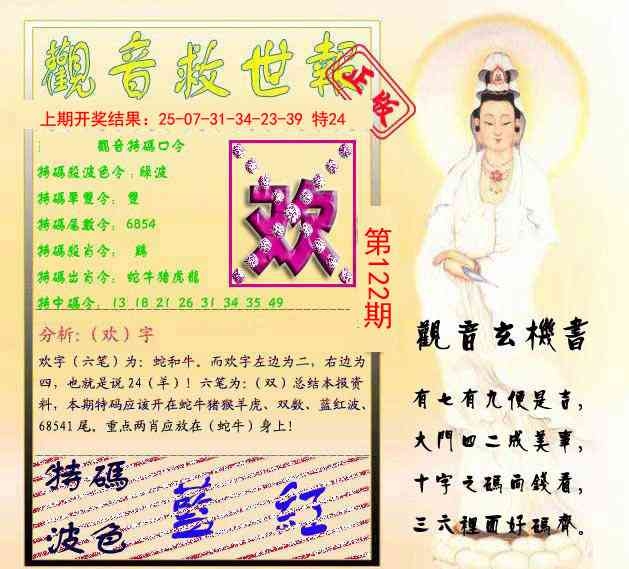 觀音救世報
正版
上期开奖结果：25-07-31-34-23-39 特24
觀音特碼口令
特碼殺波色令：綠波
特碼單雙令：雙
特碼尾數令：6854
特碼殺肖令：鷄
特碼出肖令：蛇牛猪虎龍
特中碼令：13 18 21 26 31 34 35 49
欢
第122期
分析:（欢）字
欢字（六笔）为：蛇和牛。而欢字左边为二，右边为
四，也就是说24（羊）！六笔为：（双）总结本报资
料，本期特码应该开在蛇牛猪猴羊虎、双数、蓝红波、
68541尾。重点两肖应放在（蛇牛）身上！
特碼
波色
藍 紅
觀音玄機書
有七有九便是吉，
大門四二成美事，
十字之碼向錢看，
三六裡面好碼齊。